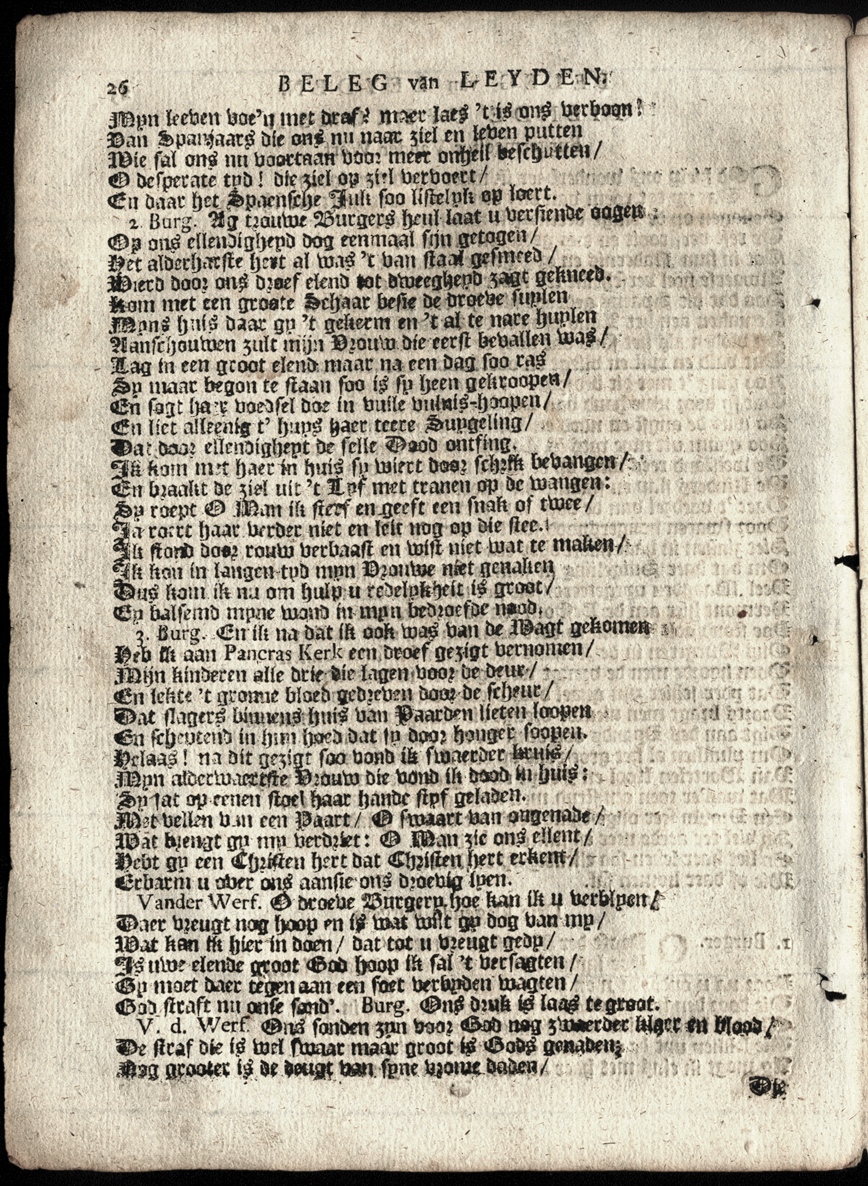 26 BELEG van LEYDEN.
Myn leeven voe'n met draf? maer laes 't is ons verboon!
Dan Spanjaars die ons nu naar ziel en leven putten
Wie sal ons nu voortaan voor meer onheil beschutten/
O desperate tyd! die ziel op ziel vervoert/
En daar het Spaensche Juk soo listelyk op loert.
2. Burg. Ag trouwe Burgers heul laat u versiende oogen
Op ons ellendigheyd dog eenmaal sijn getogen/
Het alderhartste hert al was 't van staal gesmeed/
Wierd door ons droef elend tot dweegheyd zagt gekneed.
Kom met een groote Schaar besie de droeve suylen
Myns huis daar gy 't gekerm en 't al te nare huylen
Aanschouwen zult mijn Vrouw die eerst bevallen was/
Lag in een groot elend maar na een dag soo ras
Sy maar begon te staan soo is sy heen gekroopen/
En sogt haer voedsel doe in vuile vulnis-hoopen/
En liet alleenig t' huys haer teere Suygeling/
Dat door ellendigheyt de felle Dood ontfing.
Ik kom met haer in huis sy wiert door schrik bevangen/
En braakt de ziel uit 't Lyf met tranen op de wangen:
Sy roept O Man ik sterf en geeft een snak of twee/
Ja roert haar verder niet en leit nog op die stee.
Ik stond door rouw verbaast en wist niet wat te maken/
Ik kon in langen tyd myn Vrouwe niet genaken
Dus kom ik nu om hulp u redelykheit is groot/
Ey balsemd myne wond in myn bedroefde nood.
3. Burg. En ik na dat ik ook was van de Wagt gekomen
Heb ik aan Pancras Kerk een droef gezigt vernomen/
Mijn kinderen alle drie die lagen voor de deur/
En lekte 't gronne bloed gedreven door de scheur/
Dat slagers binnens huis van Paarden lieten loopen
En scheptend in hun hoed dat sy door honger soopen.
Helaas! na dit gezigt soo vond ik swaerder kruis/
Myn alderwaertste Vrouw die vond ik dood in huis:
Sy sat op eenen stoel haar hande styf geladen.
Met vellen van een Paart/ O swaart van ongenade/
Wat brengt gy my verdriet: O Man zie ons ellent/
Hebt gy een Christen hert dat Christen hert erkent/
Erbarm u over ons aansie ons droevig lyen.
Vander Werf. O droeve Burgery hoe kan ik u verblyen/
Daer vreugt nog hoop en is wat wilt gy dog van my/
Wat kan ik hier in doen/ dat tot u vreugt gedy/
Is uwe elende groot God hoop ik sal 't versagten/
Gy moet daer tegen aan een soet verbyden wagten/
God straft nu onse sond'. Burg. Ons druk is laas te groot.
V. d. Werf. Ons sonden zyn voor God nog zwaerder als en blood/
De straf die is wel swaar maar groot is Gods genaden;
Nog grooter is de deugt van syne vrome daden/
Die